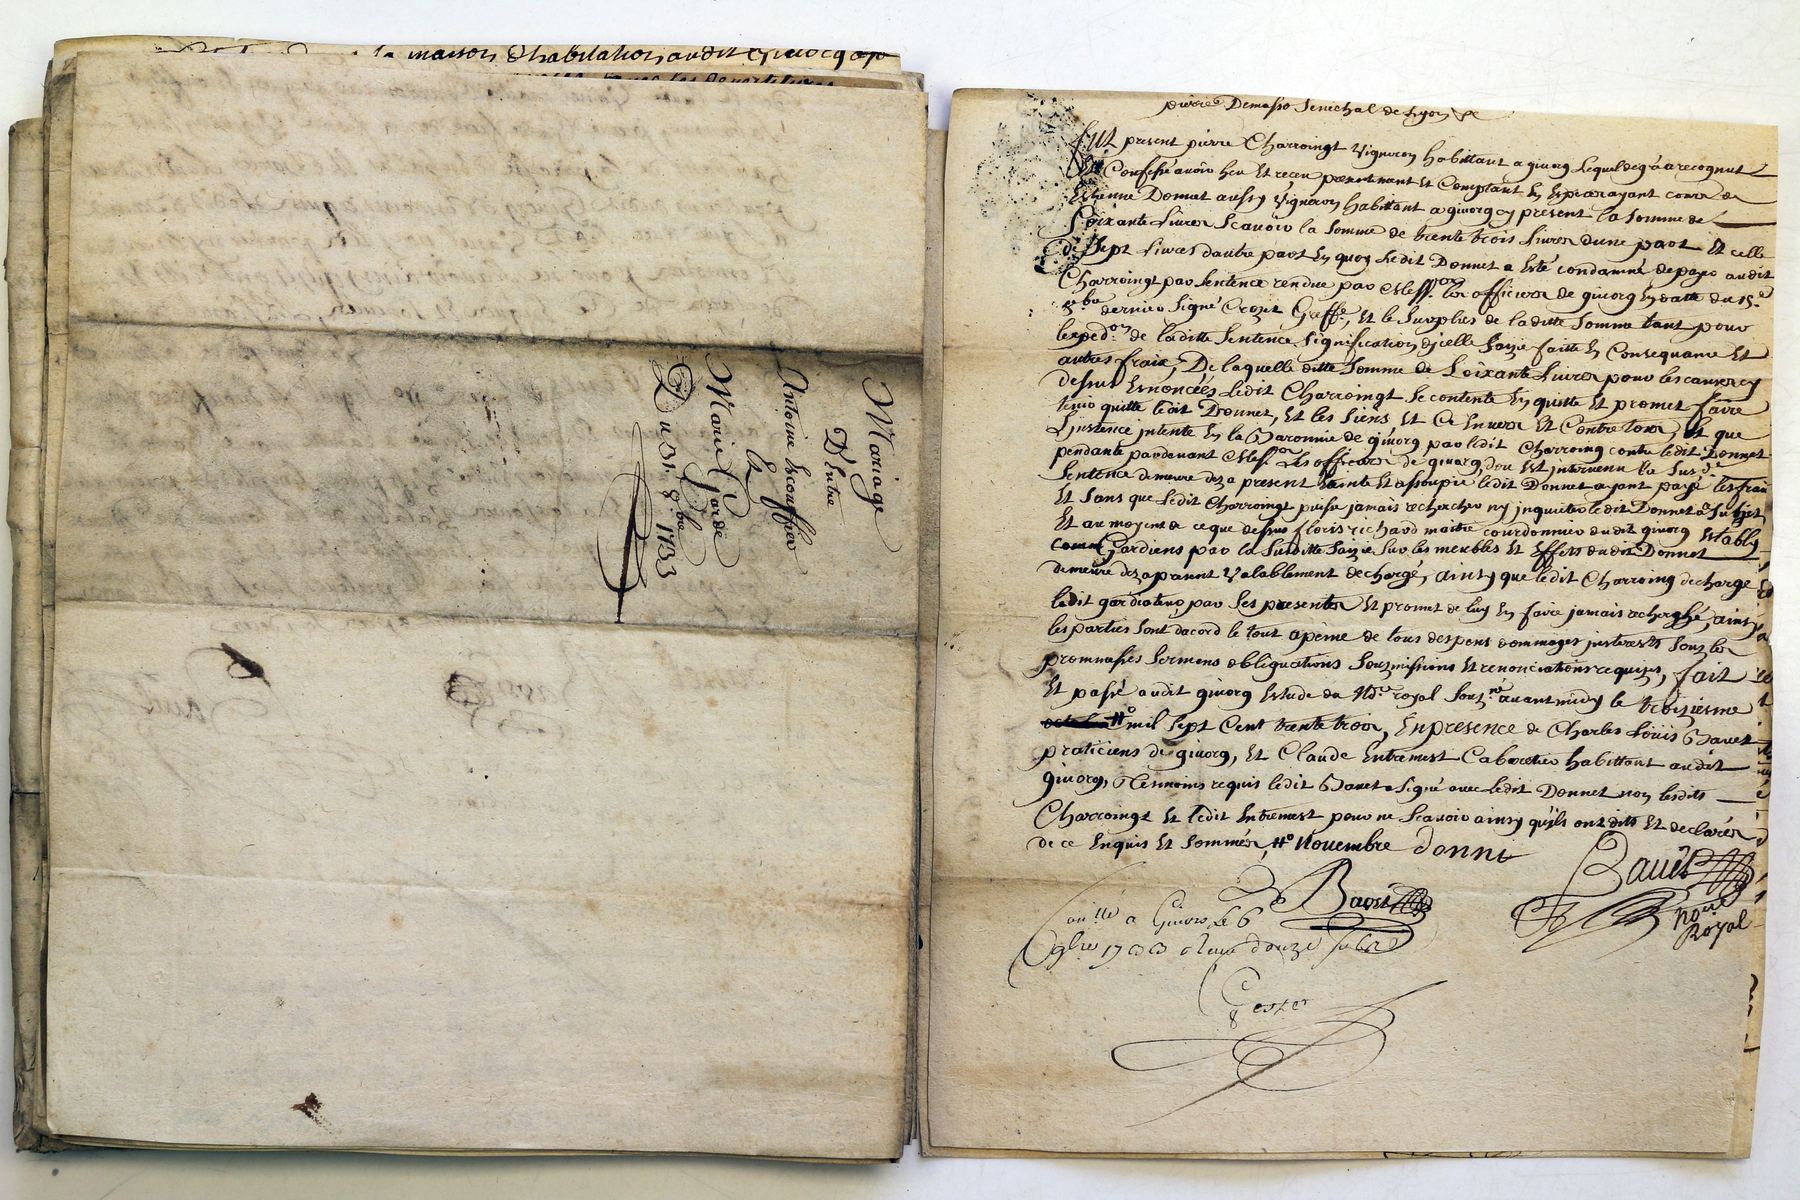 la maison d'habitation audit
Mariage
D'Entre
Antoine Escoffier
Et
Marie Gardé
Du 31e 8bre 1733
pierre Demasso Senechal de Lyon &c
Fut present pierre Charroingt Vigneron habittant a givorq Lequel de gré a recognut
Et Confessé avoir heu Et receu presentemant Et Comptant En Espece ayant cour de
Estienne Donnet aussy Vigneron habittant a givorq cy present la somme de
Soixante Livres Scavoir la somme de trente trois Livres dune part Et celle
de Sept Livres dautre part En quoy Ledit Donnet a Esté condamné de payer audit
Charroingt par Sentence rendue par Messrs les officiers de givorq En datte du 15e
7bre dernier Signé Crozet Greffe, Et le Surplus de laditte Somme tant pour
lexpedon de laditte Sentence, Signification dicelle Saizie faitte En Consequance Et
autres fraix, De laquelle ditte Somme de Soixante Livres pour les causes cy
dessus Ennoncées Ledit Charroingt Se contente En quitte Et promet faire
tenir quitte ledit Donnet, Et les Siens Et Ce Envers Et Contre tous, Et que
Linstence intenté En la Baronnie de givorq par ledit Charroing contre ledit Donnet
pendante pardevant Messrs Les officiers de givorq, dou Est intervenu la Susde
Sentence demeure dez a present Eteinte Et assoupie ledit Donnet ayant payé les fraix
Et Sans que Ledit Charroingt puisse jamais rechercher ny inquietter ledit Donnet a ce Subjet
Et au moyent de ce que dessus floris richard maitre courdonnier dudit givorq Etably
Gardiens par la Susditte Saizie Sur les meubles Et Effets dudit Donnet
demeure dez a present Valablement dechargé, ainsy que ledit Charroing decharge
ledit gardiateur par Ses presentes Et promet de luy En faire jamais recherché, ainsy
les parties Sont dacord le tout a peine de tous despens dommages interests Sous les
promnasses Sermens obliguations Soumissions Et renonciations requizes, fait
Et passé audit givorq Estude du Nore royal Souzné avant midy le troizieme
# mil Sept Cent trente trois, En presence de Charles Louis Bavet
praticiens de givorq, Et Claude Entremest Cabaretier habittant audit
givorq, Temoins requis ledit Bavet a Signé avec ledit Donnet non lesdits
Charroingt Et ledit Entremest pour ne Scavoir ainsy quils ont dits Et declarés
de ce Enquis Et Sommés, # Novembre Donnet
Bavet
Bavet
Nore
Royal
Conllé a Givors Le 6e
9bre 1733 Receu douze sols